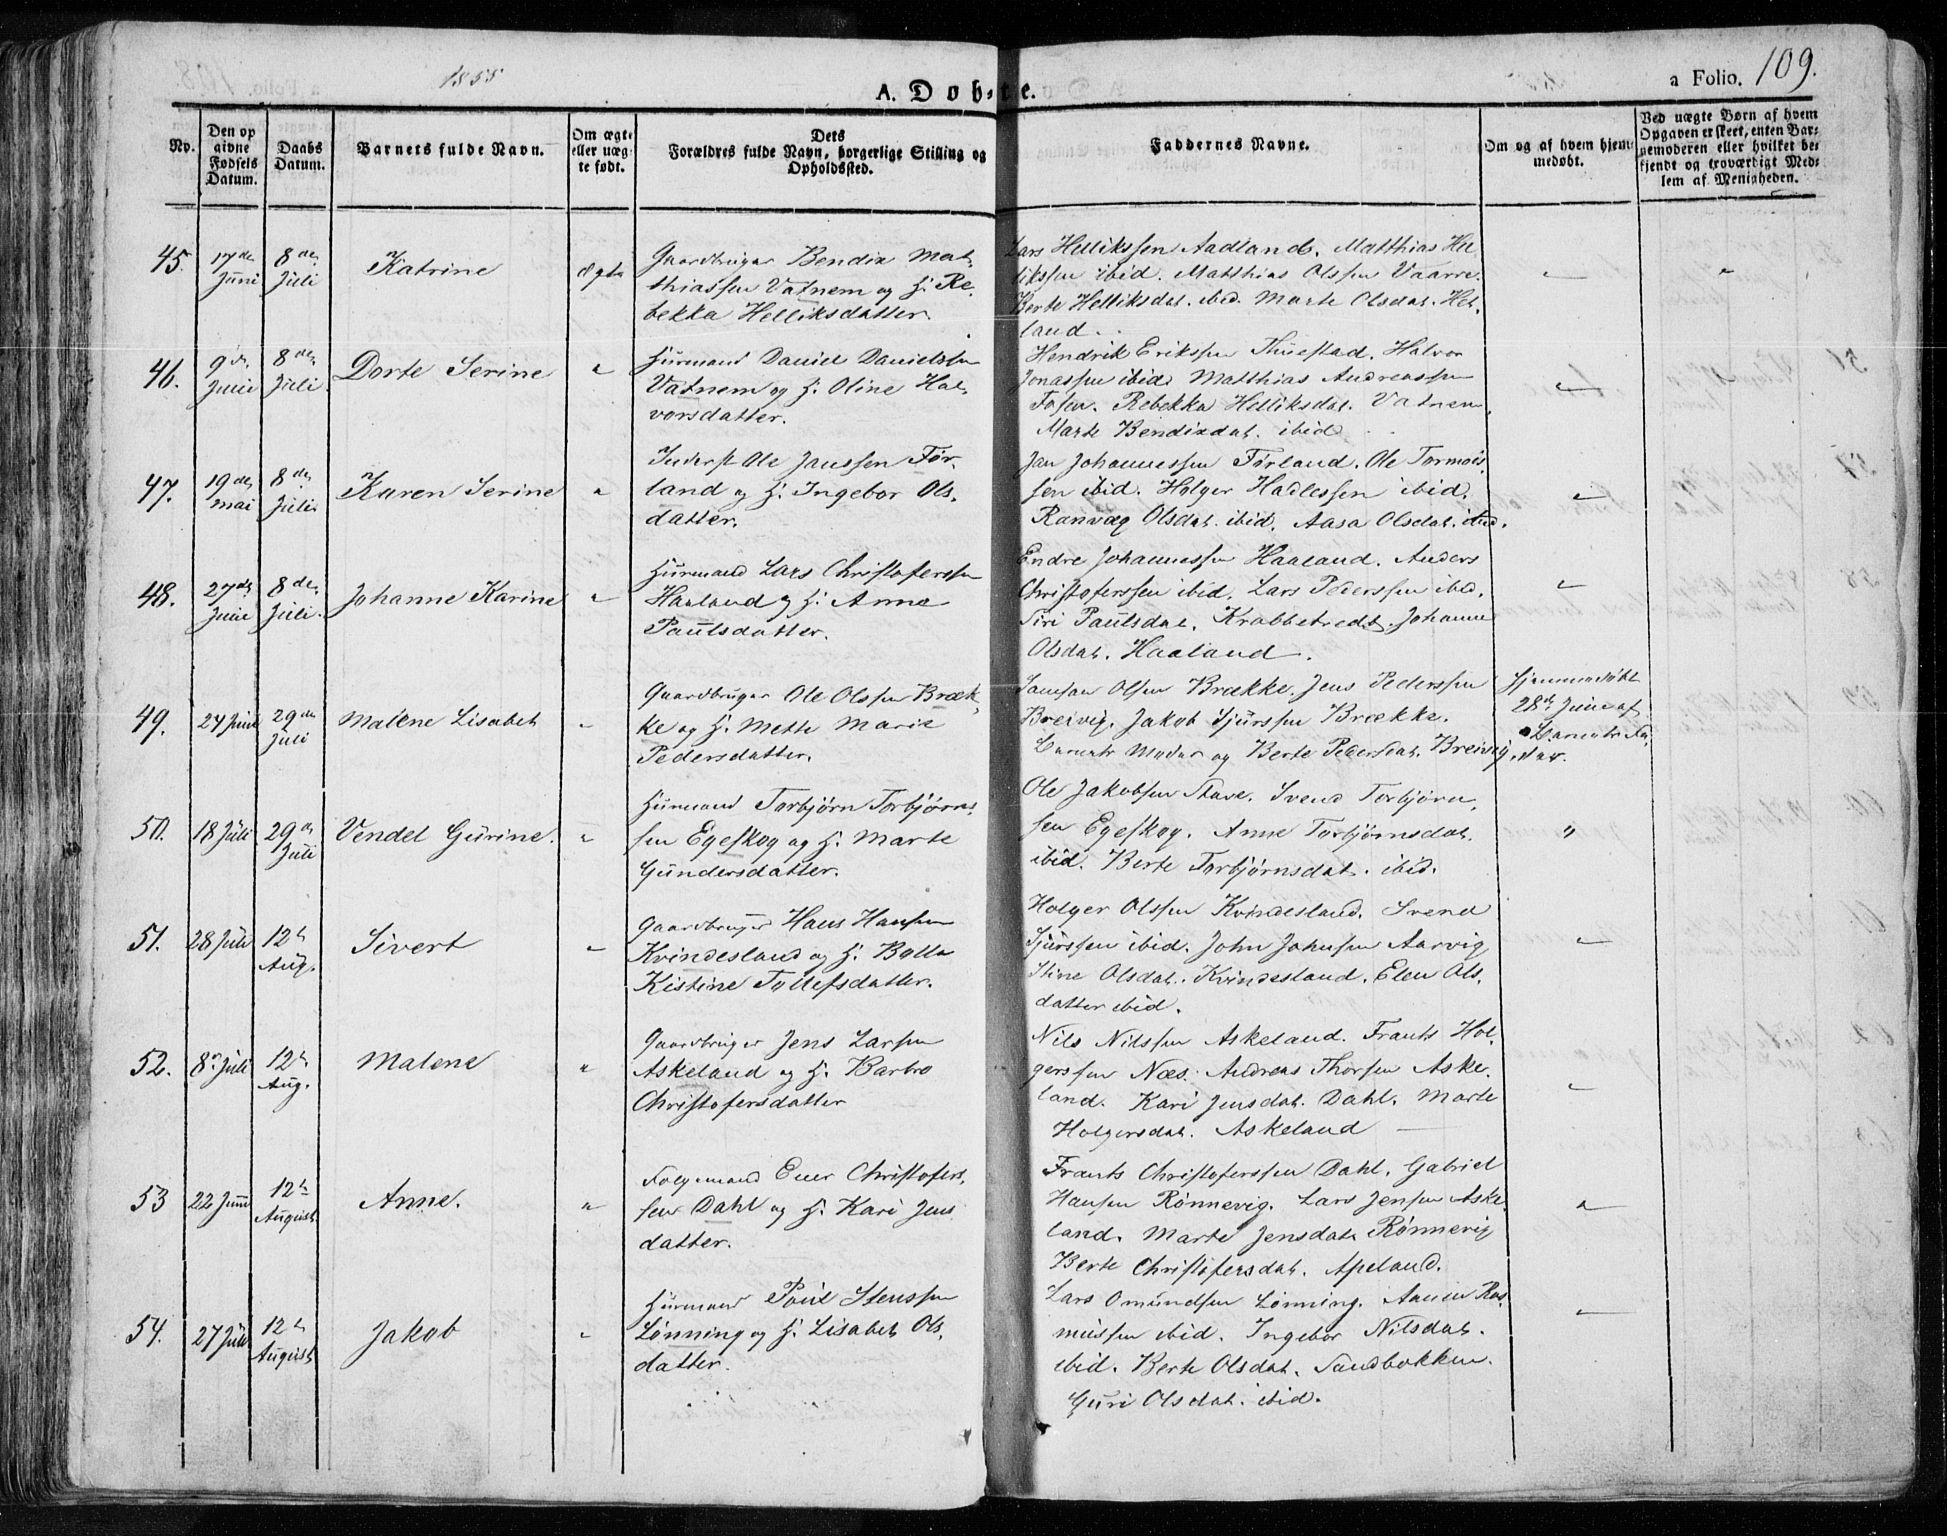 1855
A. Døbte.
a Folio. 109.
No.
Den op
givne
Fødsels
Datum.
Daabs
Datum.
Barnets fulde Navn.
Om ægte
eller uæg
te født.
Dets
Forældres fulde Navn, borgerlige Stilling og
Opholdssted.
Faddernes Navne.
Om og af hvem hjem-
medøbt.
Ved uægte Børn af hvem
Opgaven er skeet, enten Bar-
nemoderen eller hvilket be-
kjendt og troværdigt Med-
lem af Menigheden.
45. 17de Juni 8de Juli Katrine ægte
Gaardbruger Bendix Mat-
thiassen Vatnem og H. Re-
bekka Helliksdatter.
Lars Hellikssen Aadland. Matthias Hel
likssen ibid. Matthias Olssen Vaarre.
Berte Helliksdat. ibid. Marte Olsdat. Het-
land.
46. 9de Juni 8de Juli Dorte Serine "
Huusmand Daniel Danielssen
Vatnem og H. Oline Hal-
vorsdatter.
Hendrik Erikssen Thuestad. Halvor
Jonassen ibid. Matthias Andreassen
Fosen. Rebekka Helliksdat. Vatnem.
Marte Bendixdat. ibid
47. 19de mai 8de Juli Karen Serine "
Inderst Ole Janssen Før-
land og H. Ingebor Ols-
datter.
Jan Johannessen Førland. Ole Tormods-
sen ibid. Holger Hadlessen ibid.
Ranvæg Olsdat. ibid. Aasa Olsdat. ibid.
48. 27de Juni 8de Juli. Johanne Karine "
Huusmand Lars Christoferssen
Haaland og H. Anne
Paulsdatter.
Endre Johannessen Haaland. Anders
Christoferssen ibid. Lars Pederssen ibid.
Siri Paulsdat. Krabbetredt. Johanne
Olsdat. Haaland.
49. 24 Juni 29de Juli Malene Lisabet "
Gaardbruger Ole Olssen Bræk-
ke og H. Mette Marie
Pedersdatter.
Samson Olsen Brække. Jens Pederssen
Breivig. Jakob Sjurssen Brække.
Barnets Moder og Berte Pedersdat. Breivig.
Hjemmedøbt
28de Juni af
Barnets Fa-
der.
50. 18 Juli 29de Juli Vendel Gurine. "
Huusmand Torbjørn Torbjørns-
sen Egeskog og H. Marte
Gundersdatter.
Ole Jakobsen Stave. Svend Torbjørn-
sen Egeskog. Anne Torbjørnsdat.
ibid. Berte Torbjørnsdat. ibid.
51. 28 Juli 12te Aug. Sivert "
Gaardbruger Hans Hansen
Kvindesland og H. Bolla
Kistine Tollefsdatter.
Holger Olssen Kvindesland. Svend
Sjurssen ibid. John Johnsen Aarvig
Stine Olsdat. Kvindesland. Elen Ols-
datter ibid.
52. 8de Juli 12te Aug. Malene "
Gaardbruger Jens Larsen
Askeland og H. Barbro
Christofersdatter
Nils Nilssen Askeland. Frants Hol-
gerssen Næs. Andreas Thorsen Aske-
land. Kari Jensdat. Dahl. Marte
Holgersdat. Askeland
53 22 Juni 12te August Anne. "
Folgemand Ener Christofers-
sen Dahl og H. Kari Jens
datter.
Frants Christoferssen Dahl. Gabriel
Hansen Rønnevig. Lars Jensen Aske-
land. Marte Jensdat. Rønnevig
Berte Christofersdat. Apeland.
54. 27 Juli 12te August Jakob "
Huusmand Poul Stenssen
Lønning og H. Lisabet Ols-
datter.
Lars Omundsen Lønning. Aanen Ras-
mussen ibid. Ingebor Nilsdat.
ibid. Berte Olsdat. Sandbekken.
Guri Olsdat. ibid.